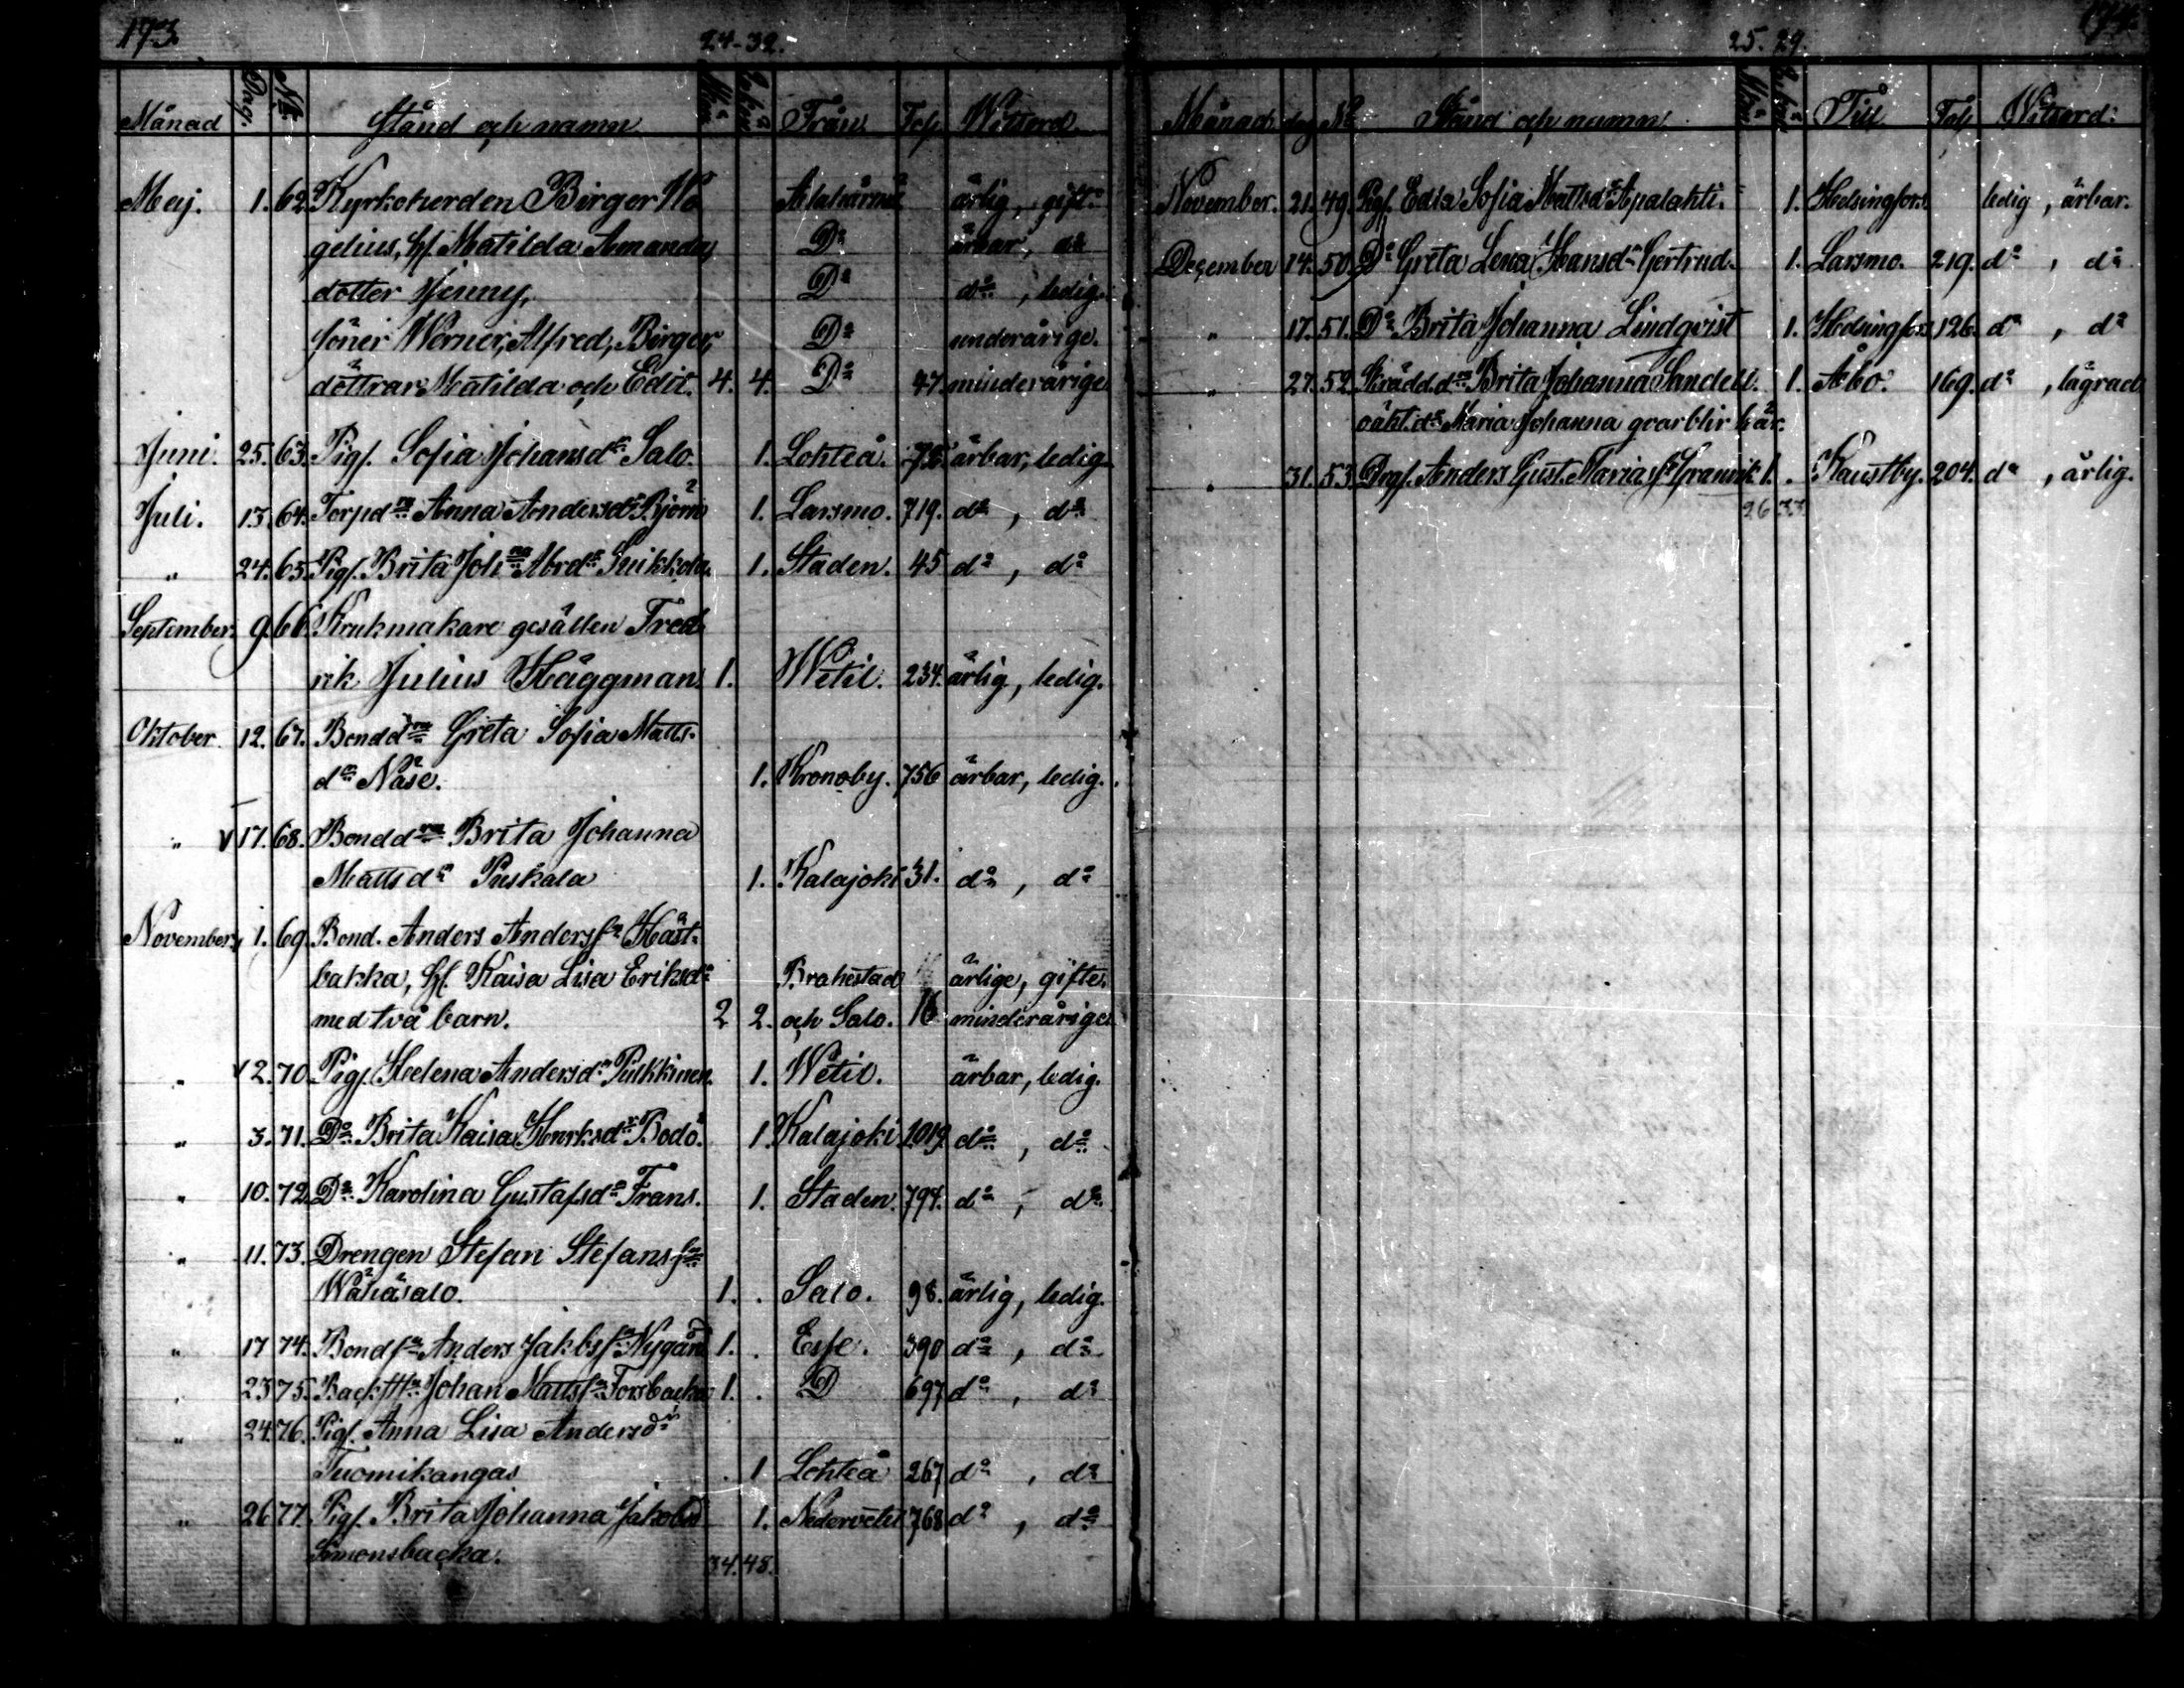 173
24-32.
Månad Dag. No Stånd och namn Mkön Qvkön Från Fol. Wittsord
Maj. 1. 62. Kyrkoherden Birger We Alahärmä ärlig, gift
gelius, h/ Matilda Amanda Do ärbar, do
dotter Jenny, Do do, ledig.
söner Werner, Alfred, Birger, Do underårige.
döttrar Matilda och Edit. 4. 4. Do 47. minderårige
Juni. 25. 63. Pig. Sofia Johansdr Salo. 1. Lohteå. 72. ärbar, ledig.
Juli. 13. 64. Torpdrn Anna Andersdr Björn 1. Larsmo. 719. do, do
" 24. 65. Pig. Brita Johna Abrdr Suikkola. 1. Staden. 45 do, do
September. 9. 66. Krukmakare gesällen Fred
rik Julius Häggman. 1. Wetil. 234. ärlig, ledig.
Oktober. 12. 67. Bonddrn Greta Sofia Matts-
dr Näse. 1. Kronoby. 756 ärbar, ledig.
" 17. 68. Bonddrn Brita Johanna
Mattsdr Puskala 1. Kalajoki 31. do, do
November. 1. 69. Bond. Anders Anderss. Häst-
bakka, h/ Kaisa Lisa Eriksdr Brahestad ärlige, gifte.
med två barn. 2 2. och Salo. 16 minderårige
" 2. 70. Pig. Helena Andersdr Pulkkinen. 1. Wetil. ärbar, ledig.
" 3. 71. Do Brita Kaisa Henrksdr Bodö. 1. Kalajoki 1019 do, do
" 10. 72. Do Karolina Gustafsdr Frans. 1. Staden. 794. do, do
" 11. 73. Drengen Stefan Stefansson
Wähäsalo. 1. . Salo. 98. ärlig, ledig.
" 17 74. Bondsn Anders Jakobsn Nygård 1. . Esse. 390 do, do
" 23 75. Backstn Johan Mattssn Forsbacka 1. . D 697 do, do
" 24. 76. Pig. Anna Lisa Andersdr
Tuomikangas . 1 Lohteå 267 do, do
" 26 77. Pig. Brita Johanna Jakobsd 1. Nedervetil 768 do, do
Simonsbacka. 34. 48.
174.
25. 29.
Månad dag No Stånd och namn Mkön Qvkön Till Fol. Witsord:
November. 21. 49. Pig. Edla Sofia Mattsdr Apalahti. 1. Helsingfors. ledig, ärbar.
December 14. 50. Do Greta Lena Hansdr Gertrud. 1. Larsmo. 219. do, do
" 17. 51. Do Brita Johanna Lindqvist 1. Helsingfors 126. do, do
" 27. 52. Skrädd.drn Brita Johanna Sandell. 1. Åbo. 169. do, lägrad
oäkt. dr Maria Johanna qvarblir här.
" 31. 53. Drg. Anders Gust. Mariass. Granvik 1. . Kaustby. 204. do, ärlig.
26 33